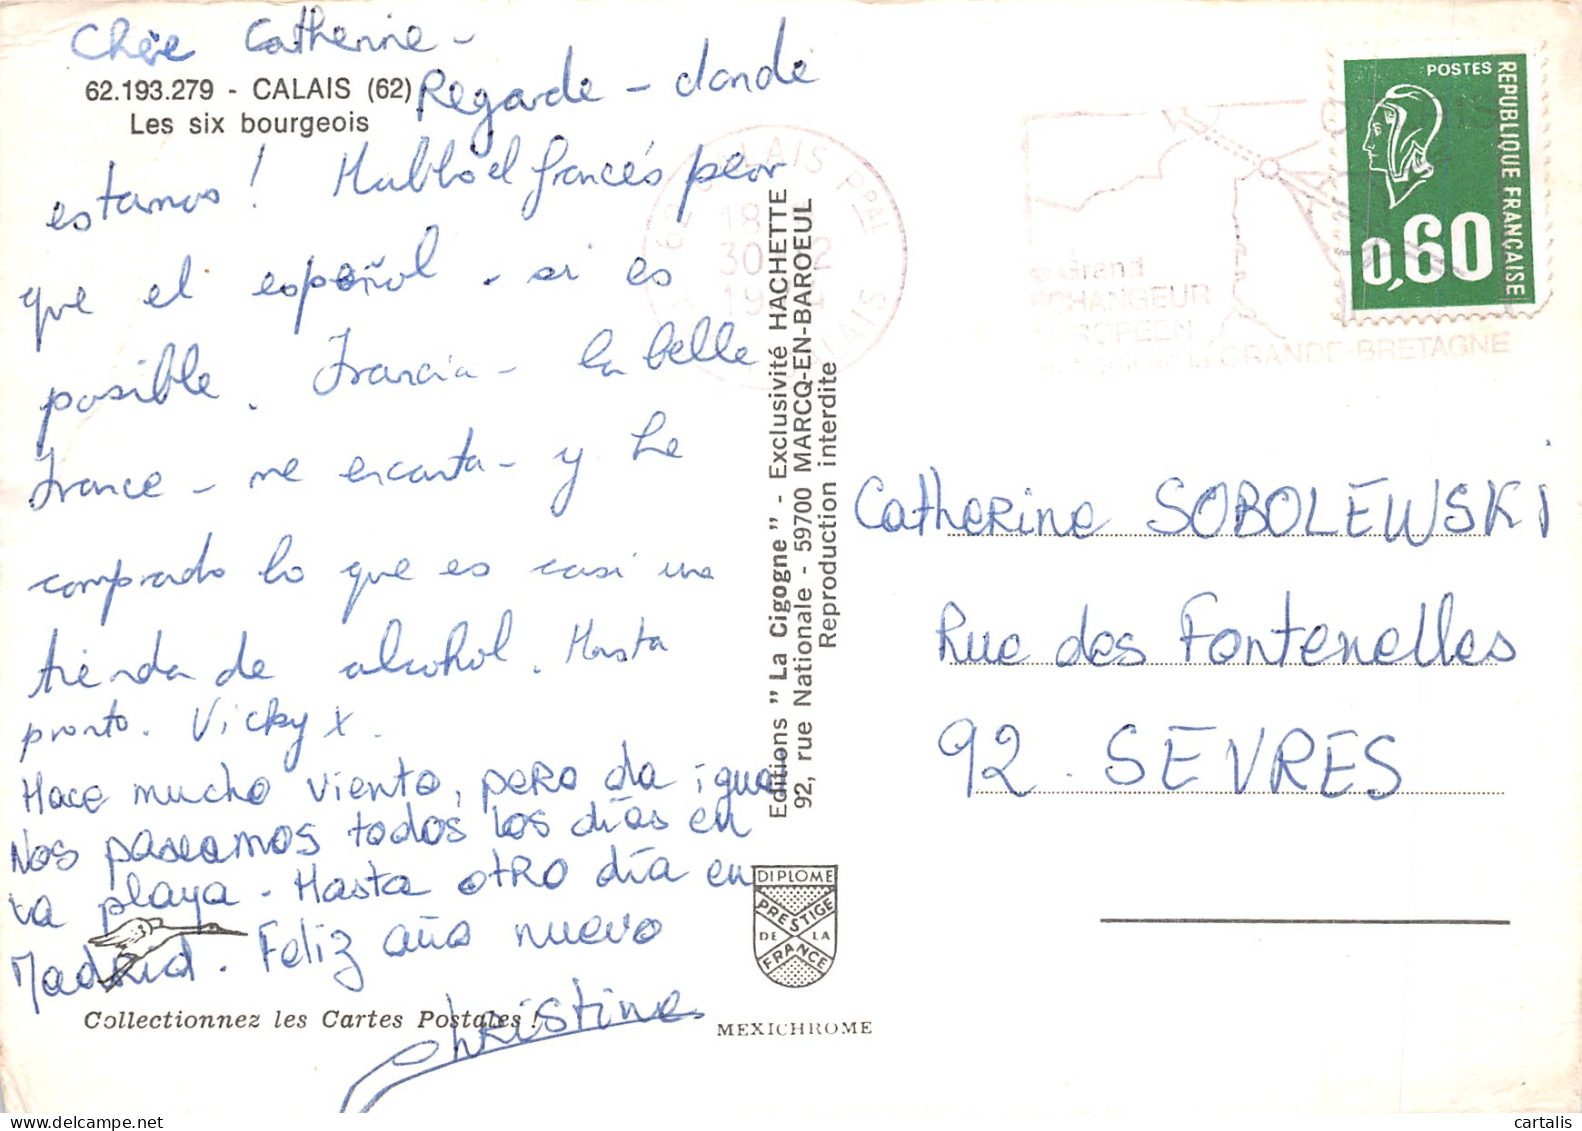 Chère Catherine -
62.193.279 - CALAIS (62)
Les six bourgeois
Regarde - donde
estamos! Hablo el francés peor
que el español - si es
possible. Francia - la belle
France - me encanta - y he
comprado lo que es casi una
tienda de alcohol. Hasta
pronto. Vicky x.
Hace mucho viento, pero da igual
Nos paseamos todos los días en
la playa - Hasta otro día en
Madrid. Feliz año nuevo
Christine
Collectionnez les Cartes Postales !
Editions " La Cigogne " - Exclusivité HACHETTE
92, rue Nationale - 59700 MARCQ-EN-BAROEUL
Reproduction interdite
DIPLOME
PRESTIGE
DE LA
FRANCE
MEXICHROME
62 CALAIS PPAL
18
30
CALAIS
Grand
ECHANGEUR
EUROPEEN
de la GRANDE-BRETAGNE
POSTES
REPUBLIQUE FRANÇAISE
0,60
Catherine SOBOLEWSKI
Rue des Fontenelles
92. SEVRES
cartalis